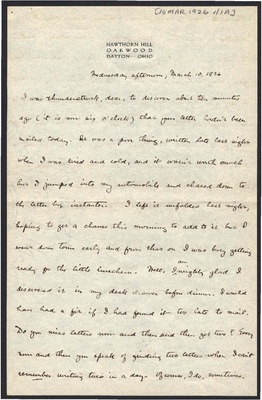 [10 MAR 1926 1/1A]
HAWTHORN HILL
OAKWOOD
DAYTON · OHIO
Wednesday afternoon, March 10, 1926
I was thunderstruck, dear, to discover about ten minutes
ago (it is now six o'clock) that your letter hadn't been
mailed today. It was a poor thing, written late last night
when I was tired and cold, and it wasn't worth much
but I jumped into my automobile and chased down to
the letter box instanter. I left it unfolded last night,
hoping to get a chance this morning to add to it but I
went down town early and from then on I was busy getting
ready for the little luncheon. Well, I am mighty glad I
discovered it in my desk drawer before dinner. I would
have had a fit if I had found it too late to mail.
Do you miss letters now and then and then get two? Every
now and then you speak of getting two letters when I can't
remember writing twice in a day. Of course, I do, sometimes.